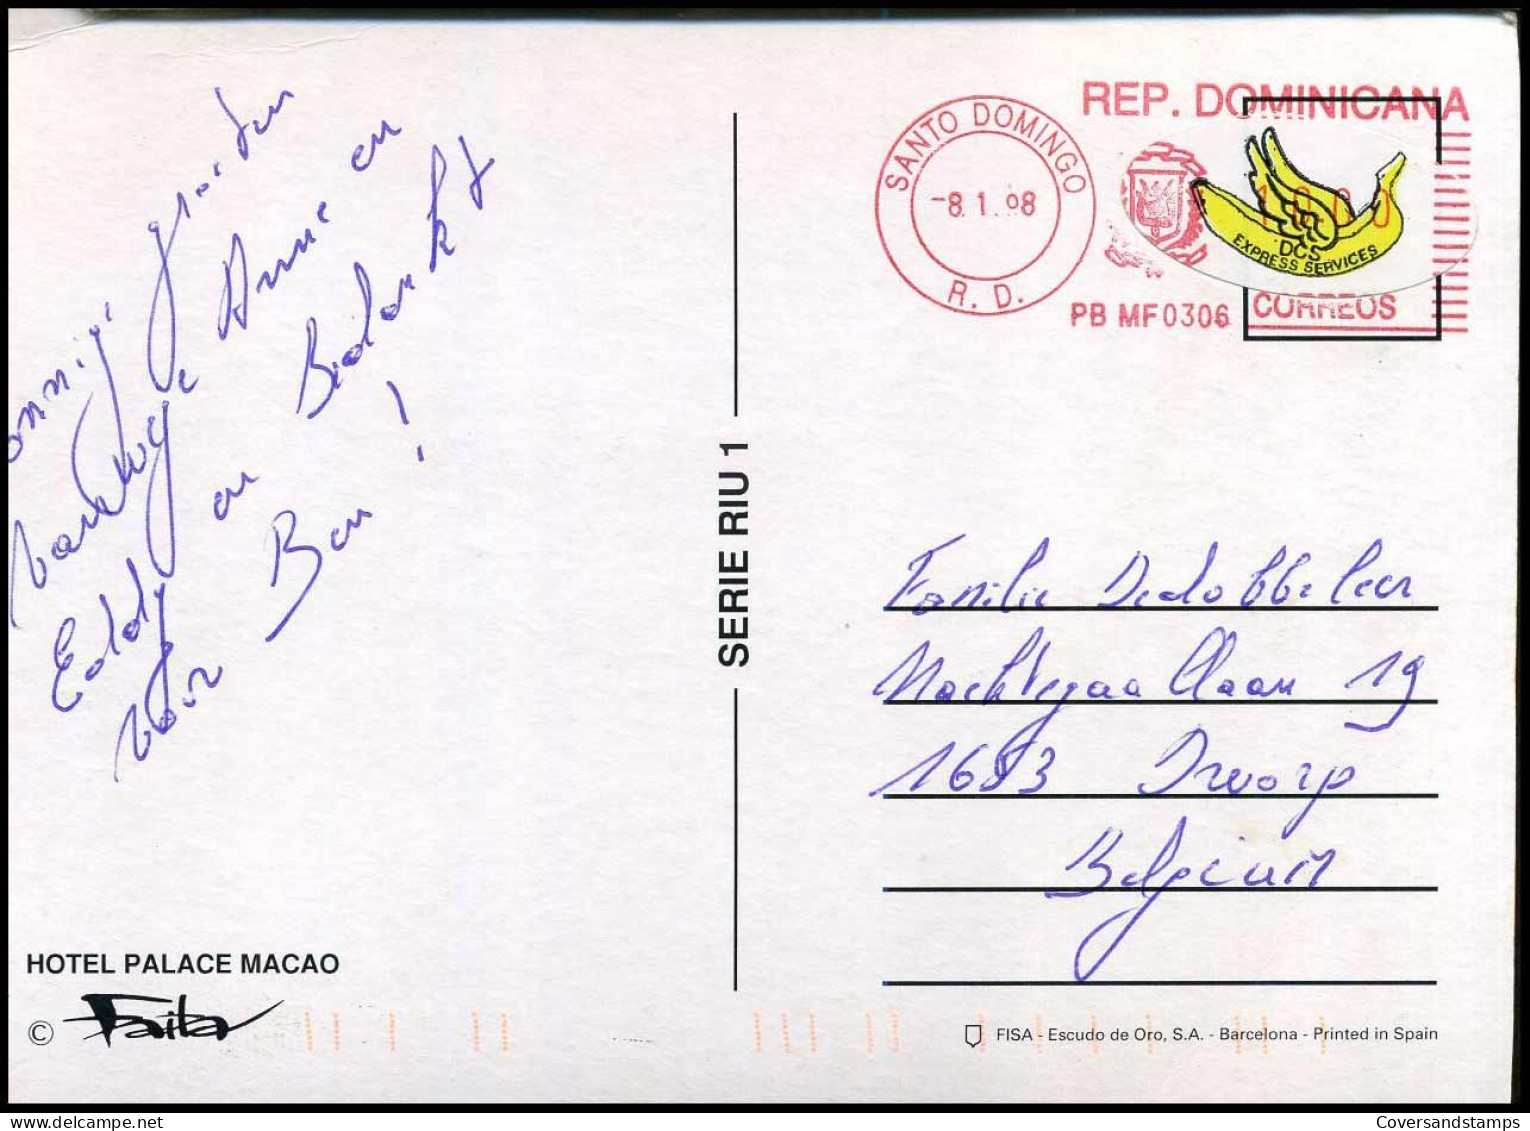 zonnige groeten
vanwege Annie en
Eddy en Bedankt
voor Ben!
HOTEL PALACE MACAO
© Faita
SERIE RIU 1
SANTO DOMINGO
-8.1.98
R. D.
REP. DOMINICANA
DCS
EXPRESS SERVICES
PB MF0306
CORREOS
Familie Dedobbeleer
Nachtegaallaan 19
1653 Dworp
Belgium
FISA - Escudo de Oro, S.A. - Barcelona - Printed in Spain
Coversandstamps